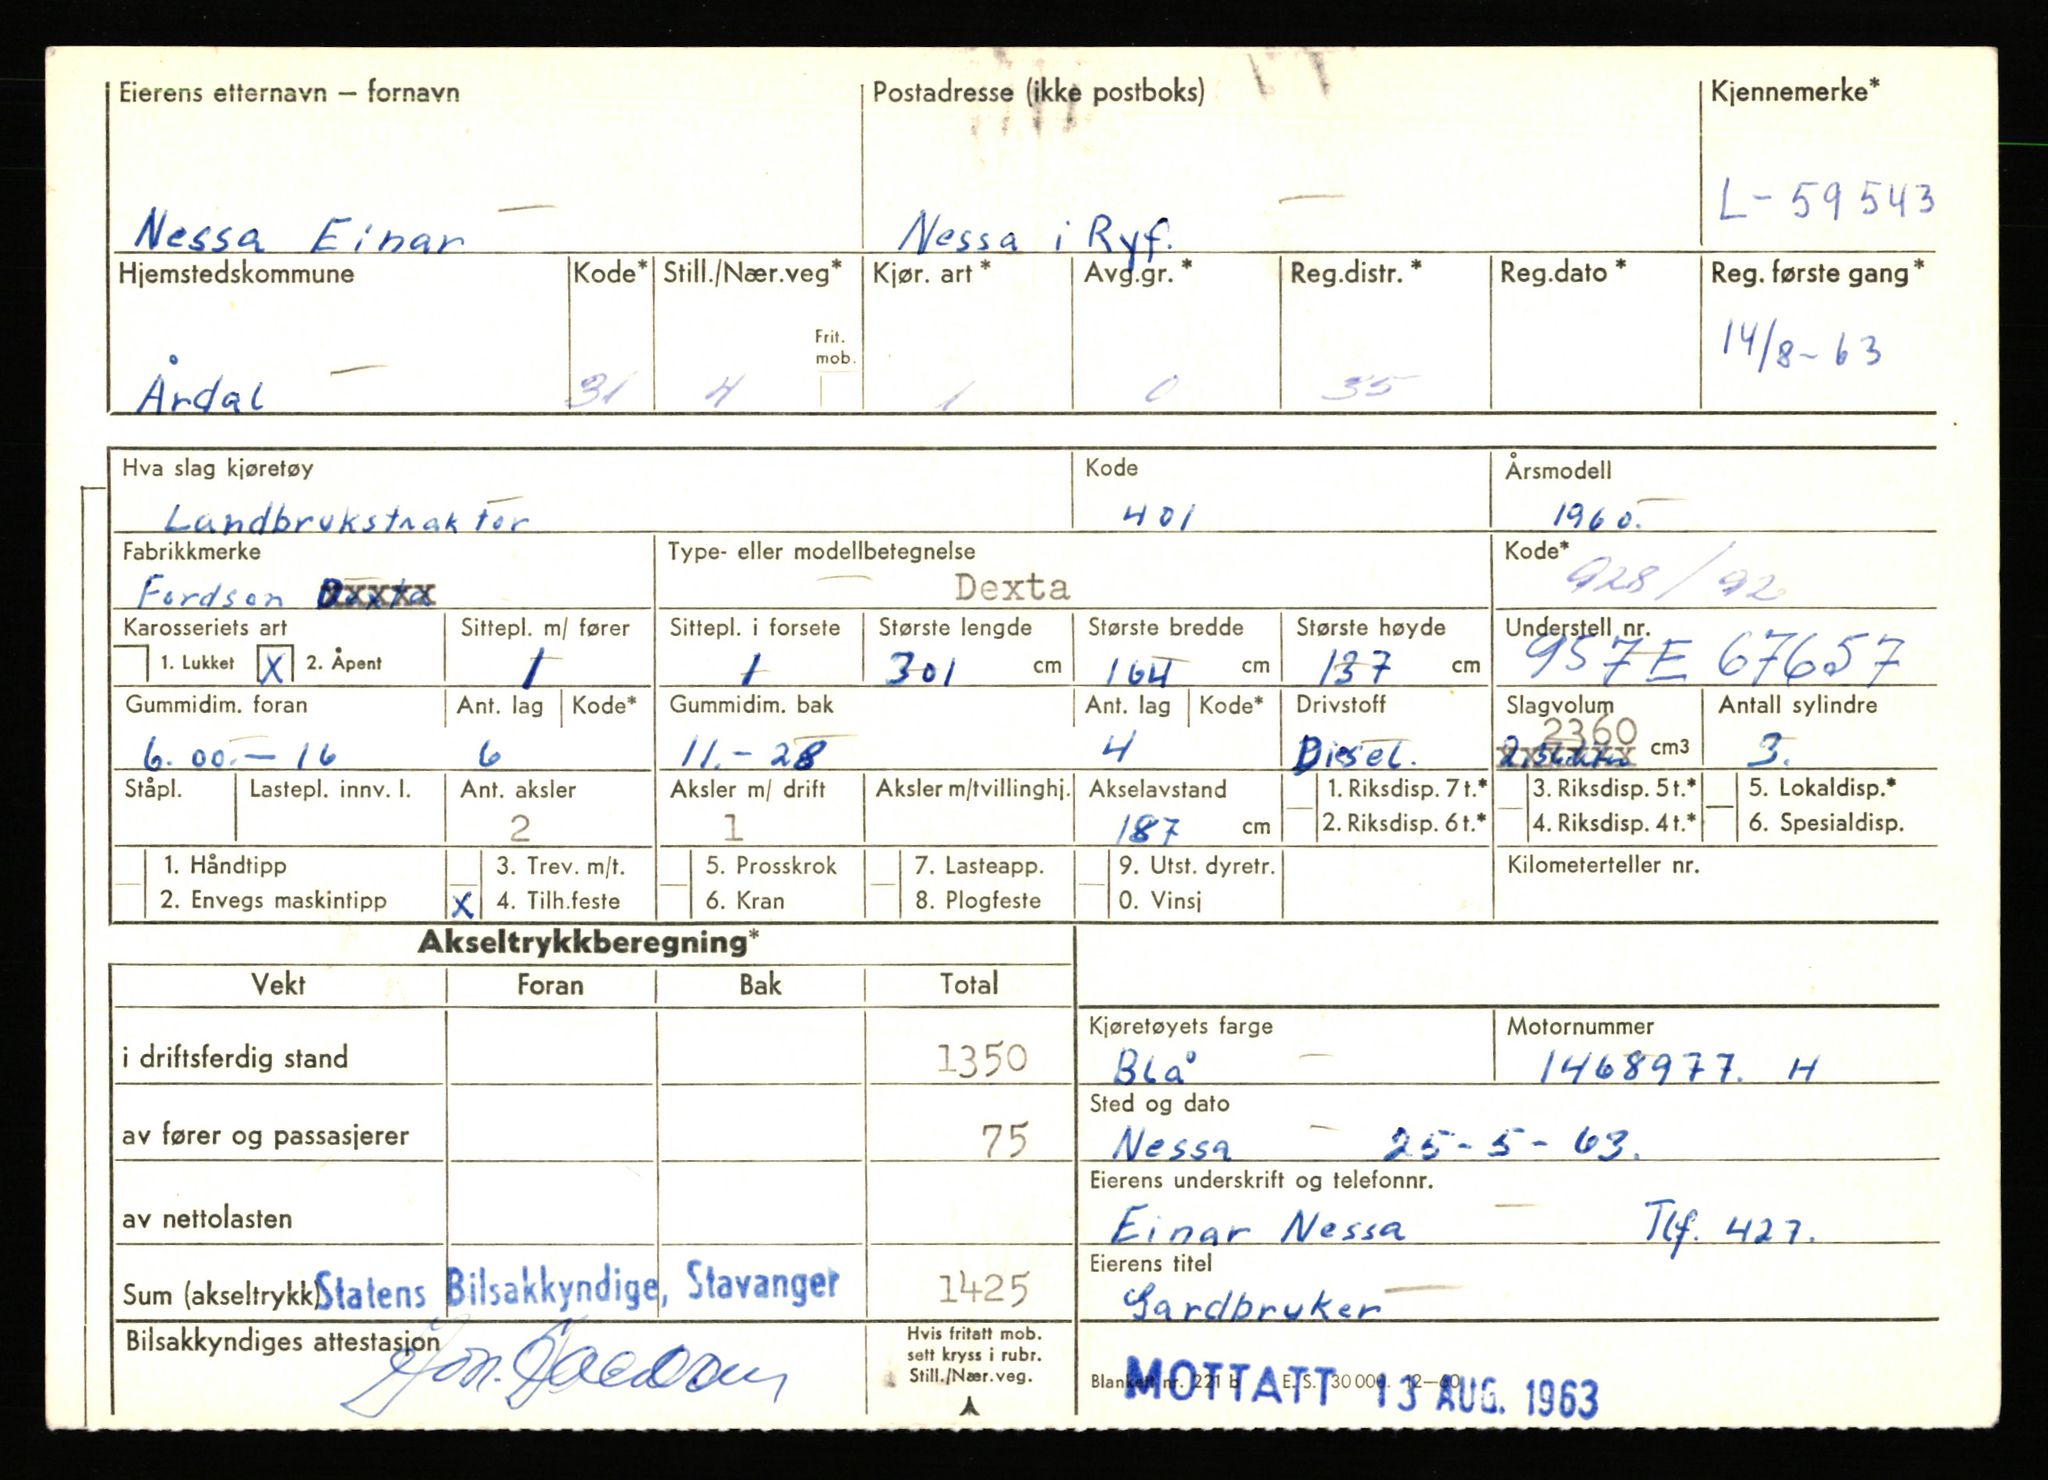 Eierens etternavn – fornavn Postadresse (ikke postboks) Kjennemerke*
Nessa Einar Nessa i Ryf. L-59543
Hjemstedskommune Kode* Still./Nær.veg* Kjør. art * Avg.gr. * Reg.distr. * Reg.dato * Reg. første gang*
Frit. mob.
Årdal 31 4 1 0 35 14/8-63
Hva slag kjøretøy Kode Årsmodell
Landbrukstraktor 401 1960.
Fabrikkmerke Type- eller modellbetegnelse Kode*
Fordson Dexta 928/92
Karosseriets art Sittepl. m/ fører Sittepl. i forsete Største lengde Største bredde Største høyde Understell nr.
1. Lukket X 2. Åpent 1 1 301 cm 164 cm 137 cm 957E 67657
Gummidim. foran Ant. lag Kode* Gummidim. bak Ant. lag Kode* Drivstoff Slagvolum Antall sylindre
6.00.-16 6 11.-28 4 Diesel. 2360 cm3 3.
Ståpl. Lastepl. innv. l. Ant. aksler Aksler m/ drift Aksler m/tvillinghj. Akselavstand 1. Riksdisp. 7 t.* 3. Riksdisp. 5 t.* 5. Lokaldisp.*
2 1 187 cm 2. Riksdisp. 6 t.* 4. Riksdisp. 4 t.* 6. Spesialdisp.
1. Håndtipp 3. Trev. m/t. 5. Prosskrok 7. Lasteapp. 9. Utst. dyretr. Kilometerteller nr.
2. Envegs maskintipp X 4. Tilh.feste 6. Kran 8. Plogfeste 0. Vinsj
Akseltrykkberegning*
Vekt Foran Bak Total
Kjøretøyets farge Motornummer
i driftsferdig stand 1350 Blå 1468977. H
Sted og dato
av fører og passasjerer 75 Nessa 25-5-63.
Eierens underskrift og telefonnr.
av nettolasten Einar Nessa Tlf. 427.
Eierens titel
Sum (akseltrykk) Statens Bilsakkyndige, Stavanger 1425 Gardbruker
Bilsakkyndiges attestasjon Hvis fritatt mob.
sett kryss i rubr.
Still./Nær.veg.
Blankett nr. 221 b E. S. 30 000. 12–60
MOTTATT 13 AUG. 1963